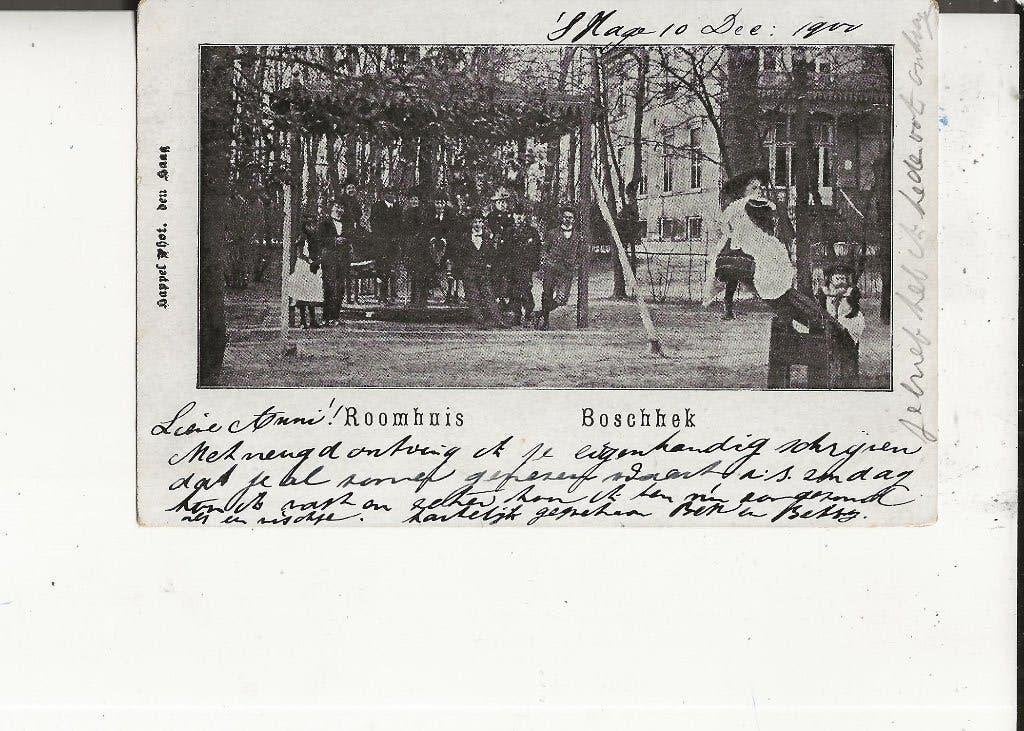 's Hage 10 Dec: 1900
Happel Phot. den Haag
Roomhuis Boschhek
Lieve Anni!
Met vreugd ontving ik je eigenhandig schrijven
dat je al zoover genezen waart a.s. zondag
kom ik vast en zeker kom ik ben nu zoo gezond
als en vischje. hartelijk gegroet van Bett en Betsy.
Je brief heb ik heden ook